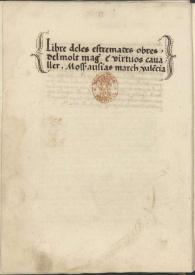 Libre deles estremades obres
del molt mag.ͨ e virtuos caua
ller. Moss. ausias march valẽcia